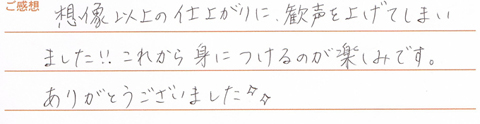 ご感想
想像以上の仕上がりに、歓声を上げてしまい
ました!!これから身につけるのが楽しみです。
ありがとうございました✧✧